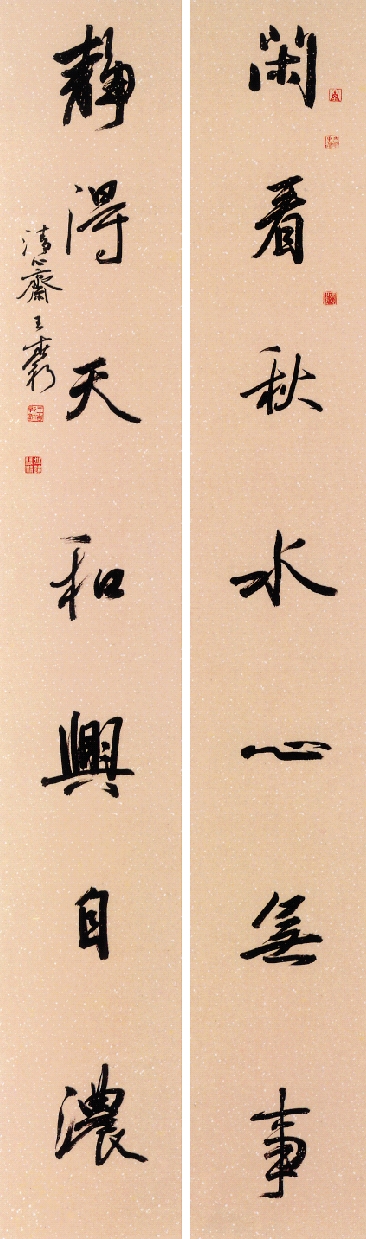 閑看秋水心無事
靜得天和興自濃
清心齋王